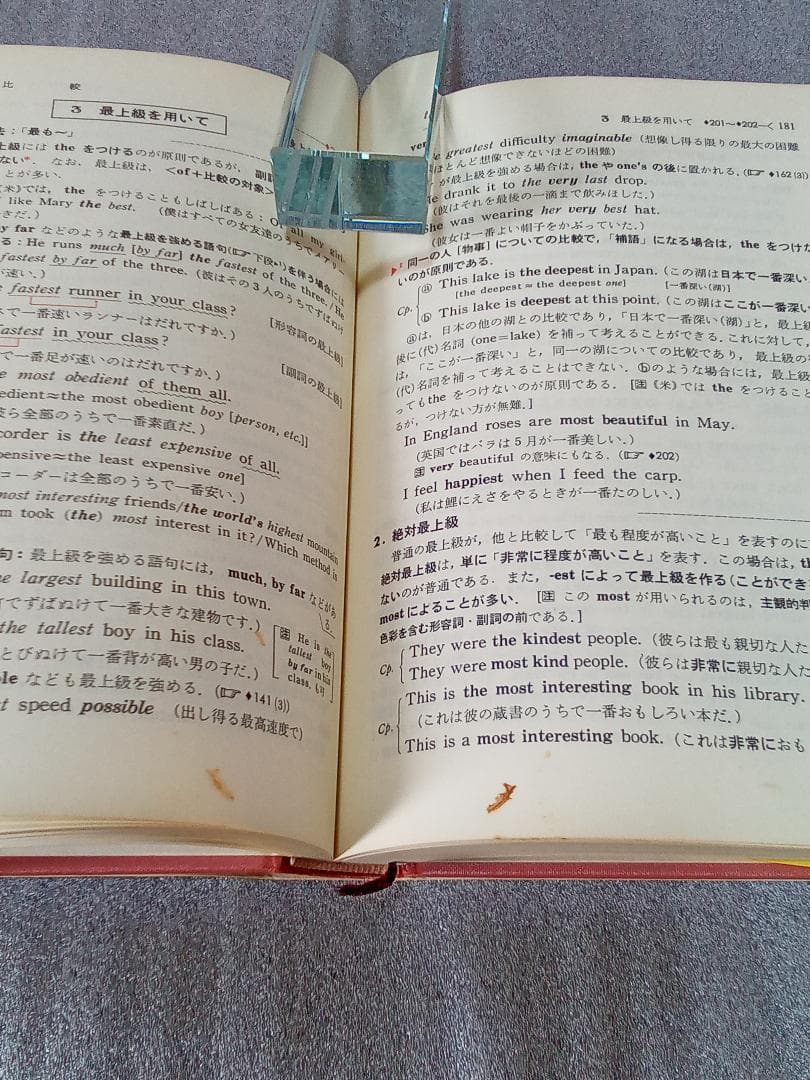 比 較
3 最上級を用いて
法：「最も〜」
上級には the をつけるのが原則であるが，副詞
ない*．なお，最上級は，＜of＋比較の対象＞
とが多い．
(米)では，the をつけることもしばしばある：Of all my girl
like Mary the best. （僕はすべての女友達のうちでメアリー
きだ．）
by far などのような最上級を強める語句(☞下段*¹)を伴う場合には
る：He runs much [by far] the fastest of the three. / He
fastest by far of the three. (彼はその3人のうちでずばぬけ
速い．）
fastest runner in your class?
スで一番速いランナーはだれですか．） [形容詞の最上級]
fastest in your class?
で一番足が速いのはだれですか．） [副詞の最上級]
most obedient of them all.
edient≈the most obedient boy [person, etc.]]
ら全部のうちで一番素直だ．）
corder is the least expensive of all.
pensive≈the least expensive one]
コーダーは全部のうちで一番安い．）
most interesting friends/the world's highest mountain
m took (the) most interest in it?/Which method is
句：最上級を強める語句には，much, by far などがある．
the largest building in this town.
町でずばぬけて一番大きな建物です．）
the tallest boy in his class.
とびぬけて一番背が高い男の子だ．）
[注 He is the
tallest boy
by far in his
class. も]
ble なども最上級を強める．(☞♦141(3))
st speed possible （出し得る最高速度で）
3 最上級を用いて ♦201〜♦202-く 181
greatest difficulty imaginable (想像し得る限りの最大の困難
ほとんど想像できないほどの困難)
が最上級を強める場合は，the や one's の後に置かれる．(☞♦162(3))
He drank it to the very last drop.
（彼はそれを最後の一滴まで飲みほした．）
She was wearing her very best hat.
（彼女は一番よい帽子をかぶっていた．）
同一の人［物事］についての比較で，「補語」になる場合は，the をつけな
いのが原則である．
Cp. ⓐ This lake is the deepest in Japan. (この湖は日本で一番深い
[the deepest ≈ the deepest one] [一番深い(湖)]
ⓑ This lake is deepest at this point. (この湖はここが一番深い
ⓐは，日本の他の湖との比較であり，「日本で一番深い(湖)」と，最上級
後に(代)名詞(one=lake)を補って考えることができる．これに対して，
は，「ここが一番深い」と，同一の湖についての比較であり，最上級の
(代)名詞を補って考えることはできない．ⓑのような場合には，最上級
ってもthe をつけないのが原則である．［注《米》では the をつけること
るが，つけない方が無難．］
In England roses are most beautiful in May.
（英国ではバラは5月が一番美しい．）
注 very beautiful の意味にもなる．(☞♦202)
I feel happiest when I feed the carp.
（私は鯉にえさをやるときが一番たのしい．）
2. 絶対最上級
普通の最上級が，他と比較して「最も程度が高いこと」を表すのに
絶対最上級は，単に「非常に程度が高いこと」を表す．この場合は，th
ないのが普通である．また，-est によって最上級を作る(ことができ
most によることが多い．［注 この most が用いられるのは，主観的判
色彩を含む形容詞・副詞の前である．］
Cp. They were the kindest people. (彼らは最も親切な人た
They were most kind people. (彼らは非常に親切な人た
Cp. This is the most interesting book in his library.
（これは彼の蔵書のうちで一番おもしろい本だ．）
This is a most interesting book. (これは非常におも